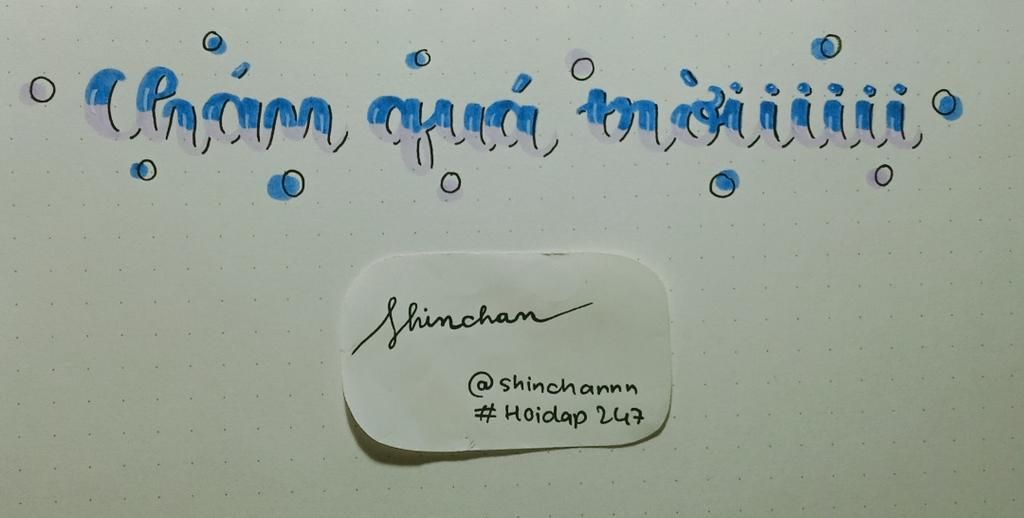 Chán quá trờiiiiii
Shinchan
@shinchannn
#Hoidap 247